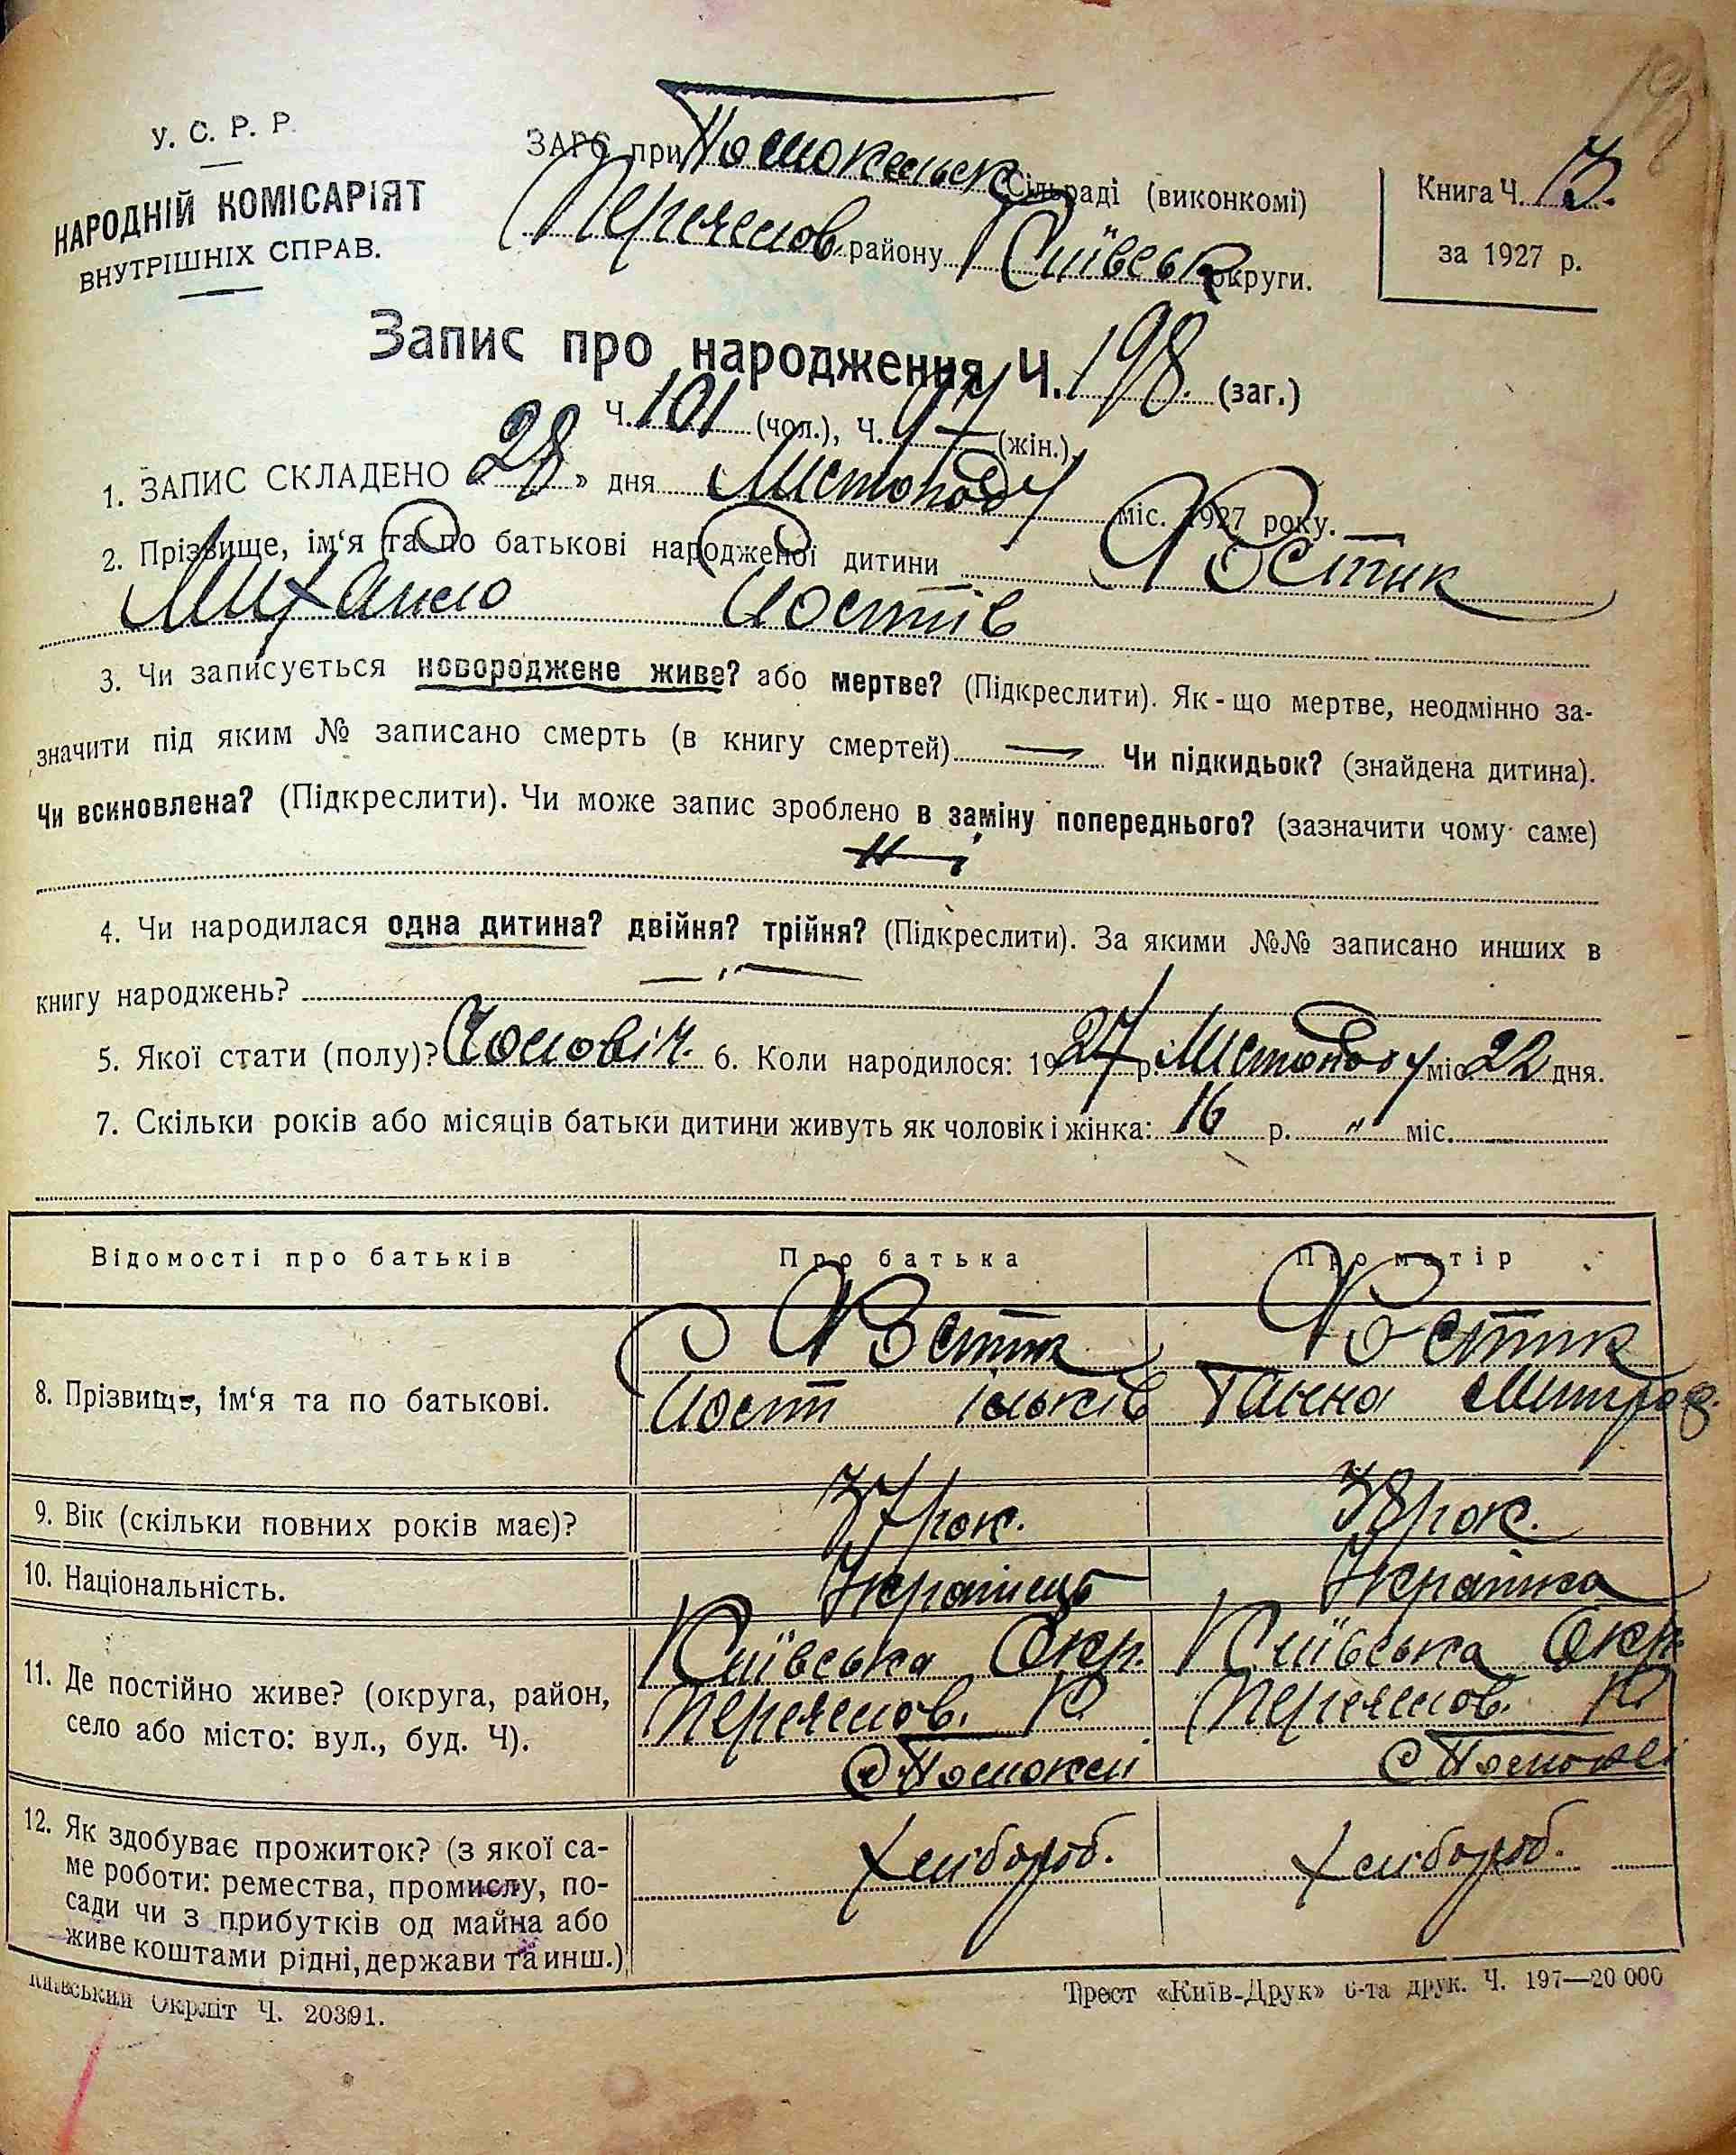 У. С. Р. Р.
НАРОДНІЙ КОМІСАРІЯТ
ВНУТРІШНІХ СПРАВ.
ЗАГС при Помокельськ Сільраді (виконкомі)
Переяслов. району Київськ округи.
Книга Ч. 3.
за 1927 р.
Запис про народження Ч. 198. (заг.)
Ч. 101 (чол.), Ч. 97 (жін.)
1. ЗАПИС СКЛАДЕНО « 28 » дня Листопаду міс. 1927 року.
2. Прізвище, ім‘я та по батькові народженої дитини Костик
Михайло Йостів
3. Чи записується новороджене живе? або мертве? (Підкреслити). Як-що мертве, неодмінно за-
значити під яким № записано смерть (в книгу смертей) — Чи підкидьок? (знайдена дитина).
Чи всиновлена? (Підкреслити). Чи може запис зроблено в заміну попереднього? (зазначити чому саме)
4. Чи народилася одна дитина? двійня? трійня? (Підкреслити). За якими №№ записано инших в
книгу народжень?
5. Якої стати (полу)? Чоловіч. 6. Коли народилося: 1927 р. Листопаду міс 22 дня.
7. Скільки років або місяців батьки дитини живуть як чоловік і жінка: 16 р. " міс.
Відомості про батьків Про батька Про матір
8. Прізвище, ім‘я та по батькові. Костик Костик
Йост Ільків Ганна Митров.
9. Вік (скільки повних років має)? 37 рок. 38 рок.
10. Національність. Українець Українка
11. Де постійно живе? (округа, район,
село або місто: вул., буд. Ч).
Київська Окр. Київська Окр.
Переяслов. Р. Переяслов. Р.
с Помоклі с Помоклі
12. Як здобуває прожиток? (з якої са-
ме роботи: ремества, промислу, по-
сади чи з прибутків од майна або
живе коштами рідні, держави та инш.)
хлібороб. хлібороб.
Київський Окрліт Ч. 20391.
Трест «Київ-Друк» 6-та друк. Ч. 197—20 000